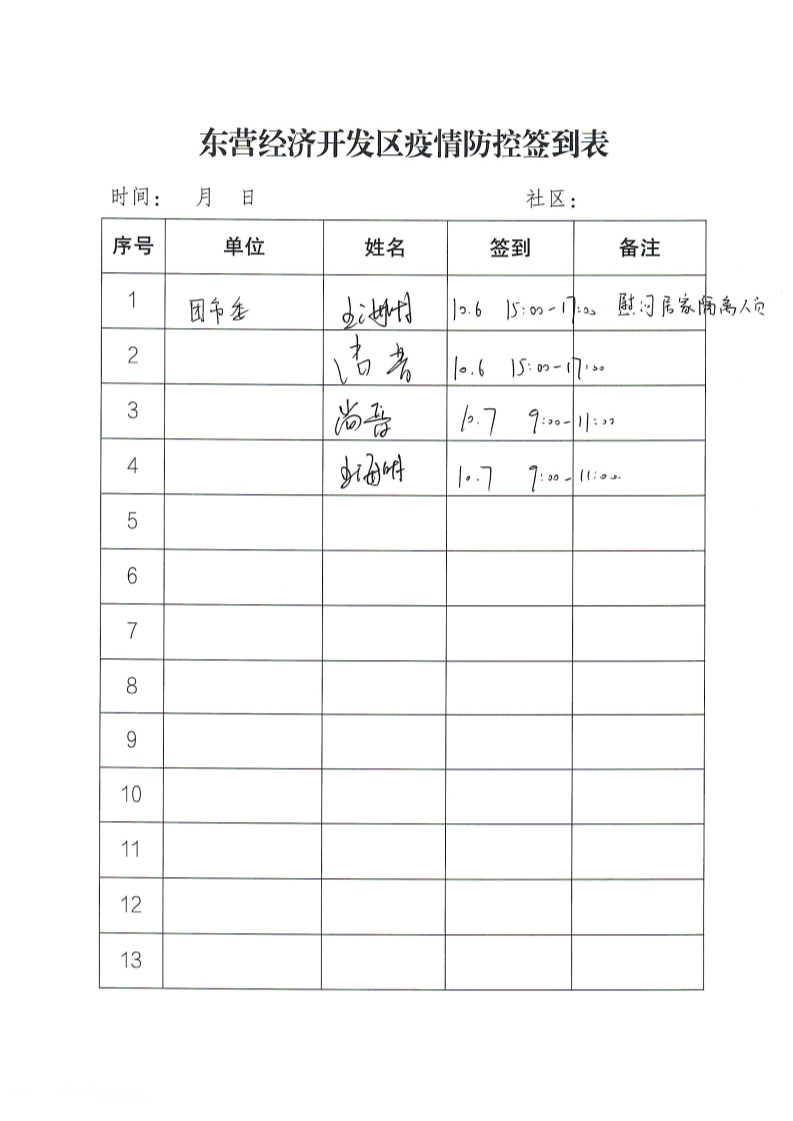 东营经济开发区疫情防控签到表
时间： 月 日 社区：
序号 单位 姓名 签到 备注
1 团市委 10.6 15:00-17:00 慰问居家隔离人员
2 10.6 15:00-17:00
3 尚晋 10.7 9:00-11:00
4 10.7 9:00-11:00
5
6
7
8
9
10
11
12
13